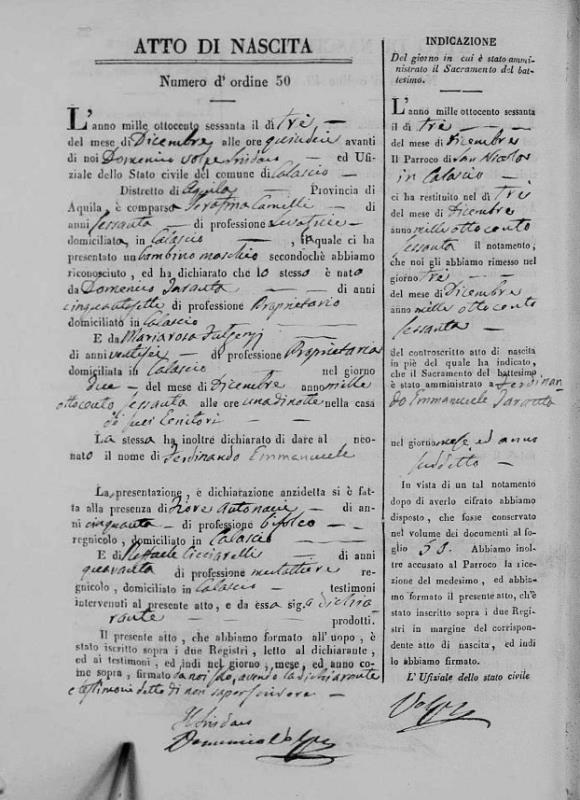 ATTO DI NASCITA
Numero d' ordine 50
L'anno mille ottocento sessanta il dì tre
del mese di Dicembre alle ore quindici avanti
di noi Domenico Volpe Sindaco ed Ufi-
ziale dello Stato civile del comune di Calascio
Distretto di Aquila Provincia di
Aquila, è comparsa Serafina Camelli di
anni sessanta di professione Levatrice
domiciliata in Calascio , iQuale ci ha
presentato un bambino maschio secondochè abbiamo
riconosciuto, ed ha dichiarato che lo stesso è nato
da Domenico di anni
cinquantasette di professione Proprietario
domiciliato in Calascio
E da Mariarosa Fulgenzj
di anni ventisei di professione Proprietaria
domiciliata in Calascio nel giorno
due del mese di Dicembre anno mille
ottocento sessanta alle ore una di notte nella casa
de' suoi Genitori
La stessa ha inoltre dichiarato di dare al neo-
nato il nome di Ferdinando Emmanuele
La presentazione, e dichiarazione anzidetta si è fat-
ta alla presenza di Fiore Antonacci di an-
ni cinquanta di professione bifolco
regnicolo, domiciliato in Calascio
E di Raffaele Cicciarelli di anni
quaranta di professione mulattiere re-
gnicolo, domiciliato in Calascio testimoni
intervenuti al presente atto, e da essa sig.a dichia
rante prodotti.
Il presente atto, che abbiamo formato all'uopo, è
stato iscritto sopra i due Registri, letto al dichiarante,
ed ai testimoni, ed indi nel giorno, mese, ed anno co-
me sopra, firmato da noi solo, avendo la dichiarante
e testimoni detto di non saper scrivere
Il Sindaco
Domenico Volpe
INDICAZIONE
Del giorno in cui è stato ammi-
nistrato il Sacramento del bat-
tesimo.
L'anno mille ottocento sessanta
il dì tre
del mese di Dicembre
Il Parroco di San Nicola
in Calascio
ci ha restituito nel dì tre
del mese di Dicembre
anno mille ottocento
sessanta il notamento,
che noi gli abbiamo rimesso nel
giorno tre
del mese di Dicembre
anno mille ottocento
sessanta
del controscritto atto di nascita
in piè del quale ha indicato,
che il Sacramento del battesimo
è stato amministrato a Ferdinan
do Emmanuele
nel giorno mese ed anno
suddetto
In vista di un tal notamento
dopo di averlo cifrato abbiamo
disposto, che fosse conservato
nel volume dei documenti al fo-
glio 50. Abbiamo inol-
tre accusato al Parroco la rice-
zione del medesimo, ed abbia-
mo formato il presente atto, ch'è
stato inscritto sopra i due Regi-
stri in margine del corrispon-
dente atto di nascita, ed indi
lo abbiamo firmato.
L' Ufiziale dello stato civile
Volpe